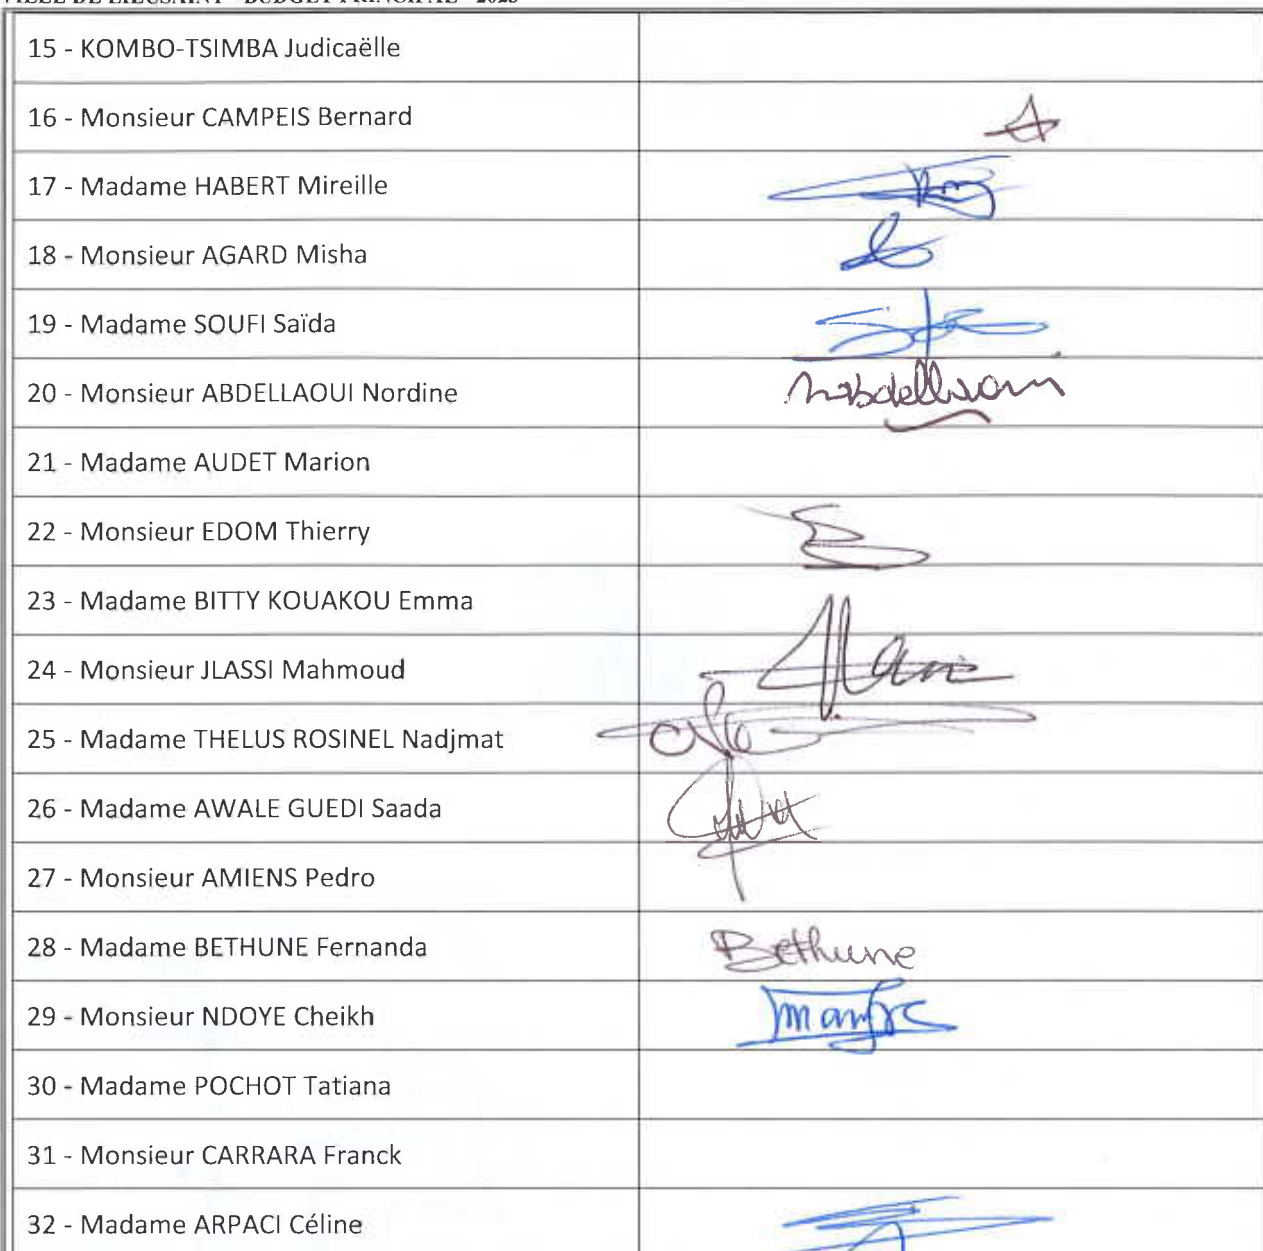 VILLE DE LIEUSAINT - BUDGET PRINCIPAL - 2023
15 - KOMBO-TSIMBA Judicaëlle
16 - Monsieur CAMPEIS Bernard
17 - Madame HABERT Mireille
18 - Monsieur AGARD Misha
19 - Madame SOUFI Saïda
20 - Monsieur ABDELLAOUI Nordine
21 - Madame AUDET Marion
22 - Monsieur EDOM Thierry
23 - Madame BITTY KOUAKOU Emma
24 - Monsieur JLASSI Mahmoud
25 - Madame THELUS ROSINEL Nadjmat
26 - Madame AWALE GUEDI Saada
27 - Monsieur AMIENS Pedro
28 - Madame BETHUNE Fernanda Bethune
29 - Monsieur NDOYE Cheikh
30 - Madame POCHOT Tatiana
31 - Monsieur CARRARA Franck
32 - Madame ARPACI Céline